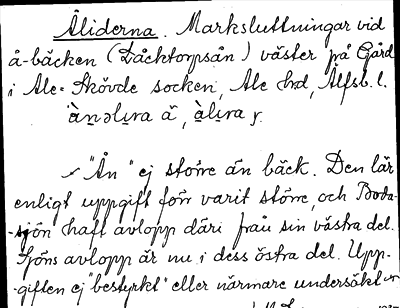 Åliderna. Marksluttningar vid
å-bäcken (Låcktorpsån) väster på Gård
i Ale-Skövde socken, Ale hd, Älfsb. l.
"Ån" ej större än bäck. Den lär
enligt uppgift förr varit större, och Boda-
-sjön haft avlopp däri från sin västra del.
Sjöns avlopp är nu i dess östra del. Upp-
-giften ej "bestyrkt" eller närmare undersökt